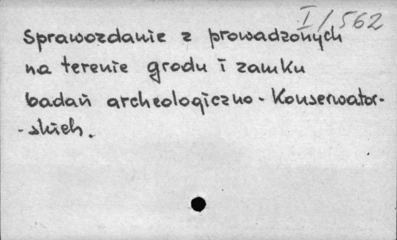 I/562
Sprawozdanie z prowadzonych
na terenie grodu i zamku
badań archeologiczno-Konserwator-
-skich.